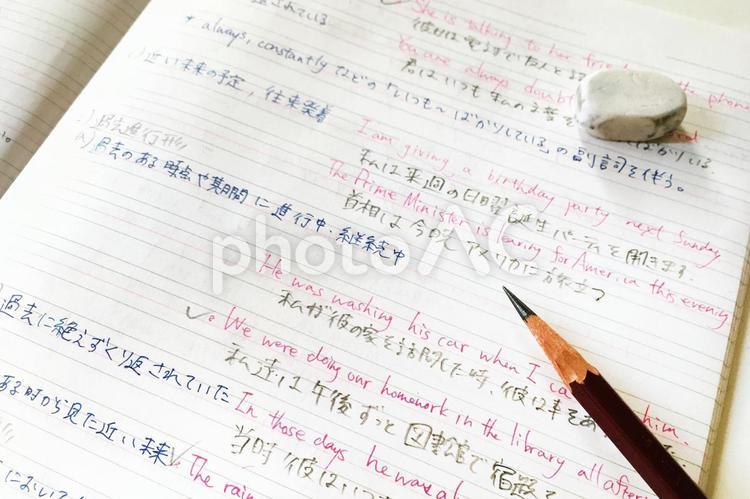 返されている
She is talking to her the phone
彼女は電話で友人と
* always, constantly などの「いつも～ばかりしている」の副詞を伴う。
You are always doubt
君はいつも私の言葉を ばかりいる.
近い未来の予定, 往来発着
I am giving a birthday party next Sunday
私は来週の日曜誕生パーティを開きます.
The Prime Minister is leaving for America this evening
首相は今晩アメリカに旅立つ
過去進行形
過去のある時点や期間に進行中・継続中
He was washing his car when I him.
私が彼の家を訪問した時、彼は車を
We were doing our homework in the library all after
私達は午後ずっと図書館で宿題を
過去に絶えずくり返されていた
In those days he was al
当時彼はいつ
ある時から見た近い未来
The rain
において
photoAC